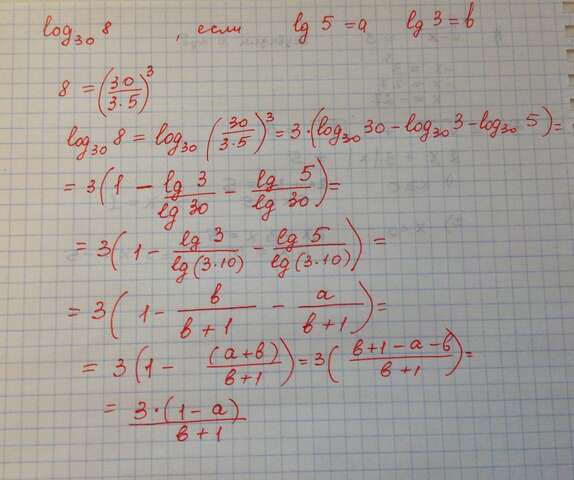 log₃₀ 8 , если lg 5 = a lg 3 = b
8 = (30/(3·5))³
log₃₀ 8 = log₃₀ (30/(3·5))³ = 3·(log₃₀ 30 − log₃₀ 3 − log₃₀ 5) =
= 3(1 − lg 3/lg 30 − lg 5/lg 30) =
= 3(1 − lg 3/lg(3·10) − lg 5/lg(3·10)) =
= 3(1 − b/(b+1) − a/(b+1)) =
= 3(1 − (a+b)/(b+1)) = 3((b+1−a−b)/(b+1)) =
= 3·(1−a)/(b+1)